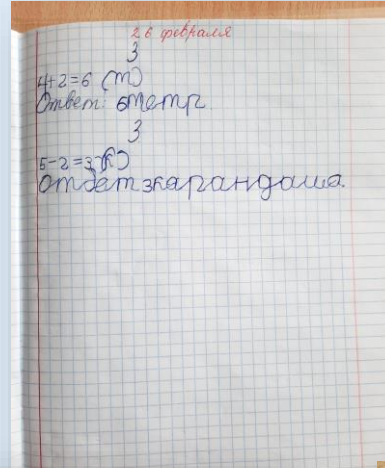 26 февраля
З
4+2=6 (т)
Ответ: 6тетр.
З
5-2=3 (к)
Ответ 3карандаша.